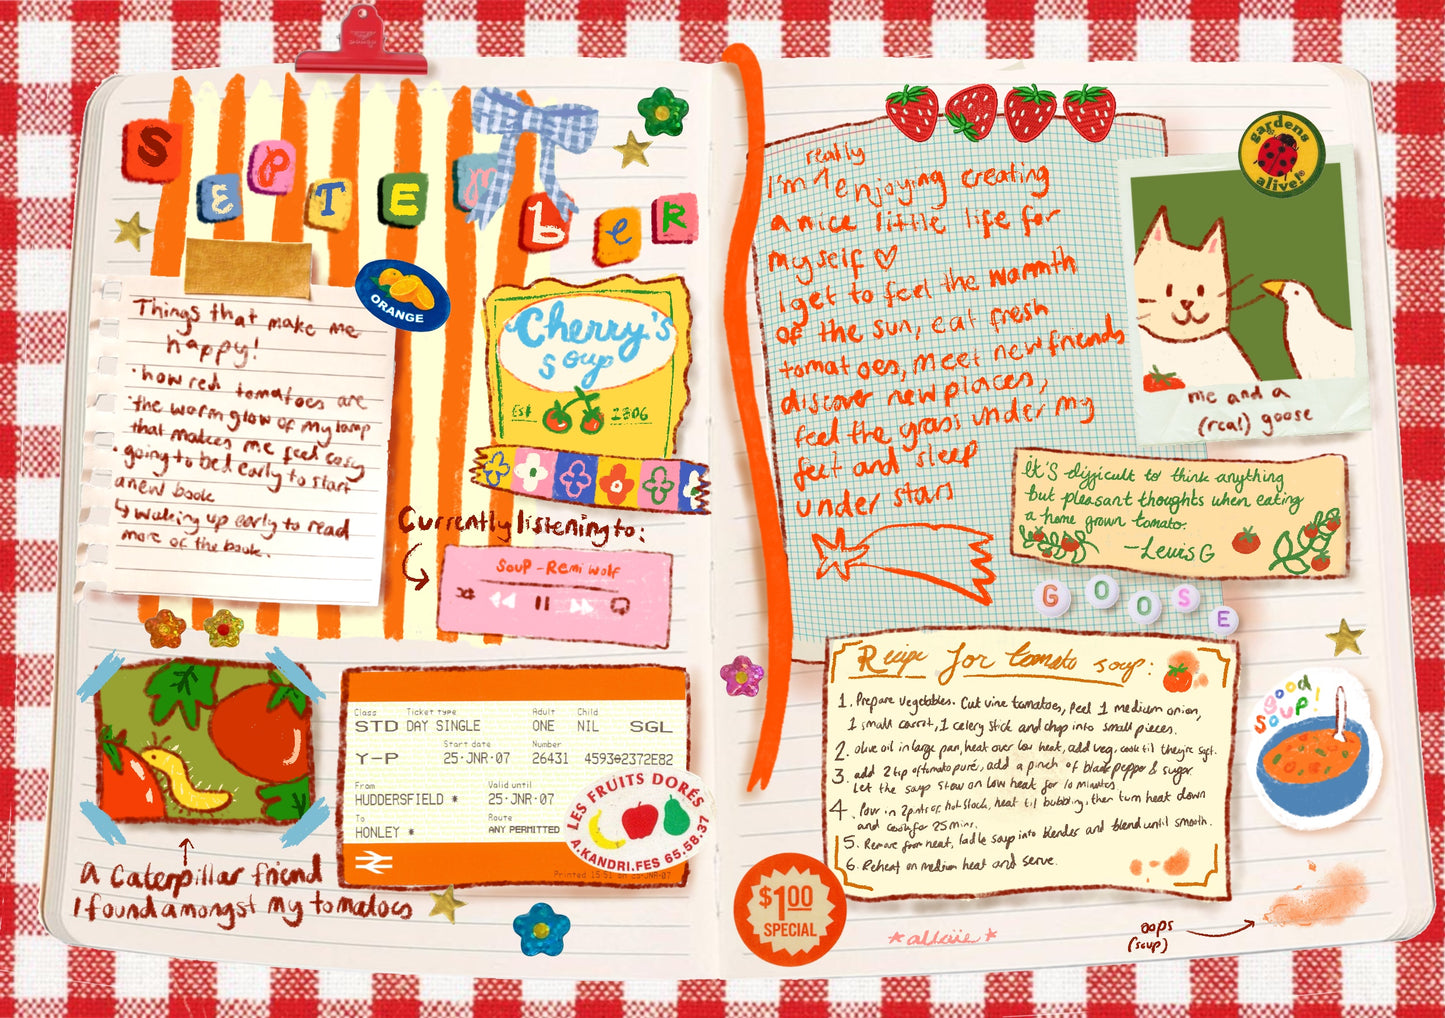 SEPTEMbeR
ORANGE
Things that make me
happy!
• how red tomatoes are
• the warm glow of my lamp
that makes me feel cosy
• going to bed early to start
a new book
↳ waking up early to read
more of the book.
Cherry's
soup
Est 2306
Currently listening to:
SOUP - Remi Wolf
a caterpillar friend
I found amongst my tomatoes
Class Ticket type Adult Child
STD DAY SINGLE ONE NIL SGL
Start date Number
Y-P 25·JNR·07 26431 4593●2372E82
From Valid until
HUDDERSFIELD * 25·JNR·07
To Route
HONLEY * ANY PERMITTED
Printed 15:51 on 25·JNR·07
LES FRUITS DORÉS
A.KANDRI.FES 65.58.37
really
I'm ^ enjoying creating
a nice little life for
myself ♡
I get to feel the warmth
of the sun, eat fresh
tomatoes, meet new friends
discover new places,
feel the grass under my
feet and sleep
under stars
gardens
alive!®
me and a
(real) goose
It's difficult to think anything
but pleasant thoughts when eating
a home grown tomato.
-Lewis G
GOOSE
Recipe for tomato soup:
1. Prepare vegetables. Cut vine tomatoes, peel 1 medium onion,
1 small carrot, 1 celery stick and chop into small pieces.
2. olive oil in large pan, heat over low heat, add veg, cook til they're soft.
3. add 2 tsp of tomato puré, add a pinch of black pepper & sugar
let the soup stew on low heat for 10 minutes
4. Pour in 2 pints of hot stock, heat til bubbling, then turn heat down
and cook for 25 mins.
5. Remove from heat, ladle soup into blender and blend until smooth.
6. Reheat on medium heat and serve.
good
soup!
$1.00
SPECIAL
oops
(soup)